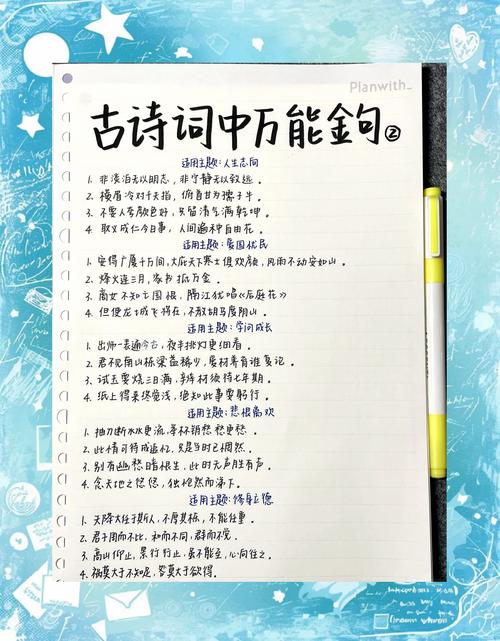 Planwith_
古诗词中万能金句②
适用主题:人生志向
1. 非淡泊无以明志,非宁静无以致远。
2. 横眉冷对千夫指,俯首甘为孺子牛。
3. 不要人夸颜色好,只留清气满乾坤。
4. 取义成仁今日事,人间遍种自由花。
适用主题:爱国忧民
1. 安得广厦千万间,大庇天下寒士俱欢颜,风雨不动安如山。
2. 烽火连三月,家书抵万金。
3. 商女不知亡国恨,隔江犹唱《后庭花》
4. 但使龙城飞将在,不教胡马度阴山。
适用主题:学问成长
1. 出师一表通今古,夜半挑灯更细看。
2. 君不见角山栋梁益稀少,爱材养育谁复记。
3. 试玉要烧三日满,辨材须待七年期。
4. 纸上得来终觉浅,绝知此事要躬行。
适用主题:悲恨离欢
1. 抽刀断水水更流,举杯销愁愁更愁。
2. 此情可待成追忆,只是当时已惘然。
3. 别有幽愁暗恨生,此时无声胜有声。
4. 念天地之悠悠,独怆然而涕下。
适用主题:修身立德
1. 天降大任于斯人,不厚其栋,不能任重。
2. 君子周而不比,和而不同,群而不党。
3. 高山仰止,景行行止,虽不能至,心向往之。
4. 祸莫大于不知足,咎莫大于欲得。